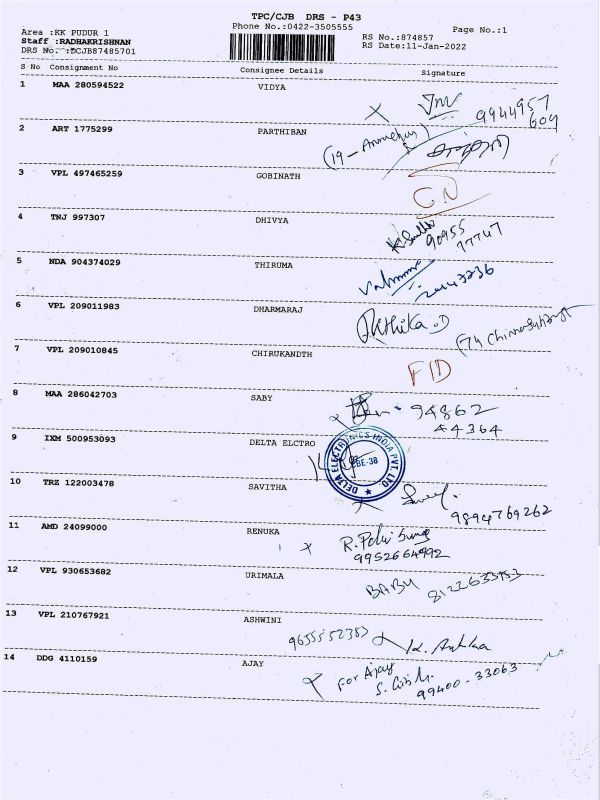 TPC/CJB DRS - P43
Phone No.:0422-3505555
Page No.:1
Area :KK PUDUR 1
Staff :RADHAKRISHNAN
DRS No. :DCJB87485701
RS No.:874857
RS Date:11-Jan-2022
S No Consignment No Consignee Details Signature
1 MAA 280594522 VIDYA
9944957
604
2 ART 1775299 PARTHIBAN
3 VPL 497465259 GOBINATH
GN
4 TNJ 997307 DHIVYA
90955
77747
5 NDA 904374029 THIRUMA
6 VPL 209011983 DHARMARAJ
Rithika.D
7 VPL 209010845 CHIRUKANDTH
FID
8 MAA 286042703 SABY
94862
44364
9 IXM 500953093 DELTA ELCTRO
DELTA ELECTRONICS INDIA PVT. LTD
CBE-38
10 TRZ 122003478 SAVITHA
9894769262
11 AMD 24099000 RENUKA
9952664992
12 VPL 930653682 URIMALA
BABU
13 VPL 210767921 ASHWINI
9655552383
14 DDG 4110159 AJAY
For Ajay
99400-33063